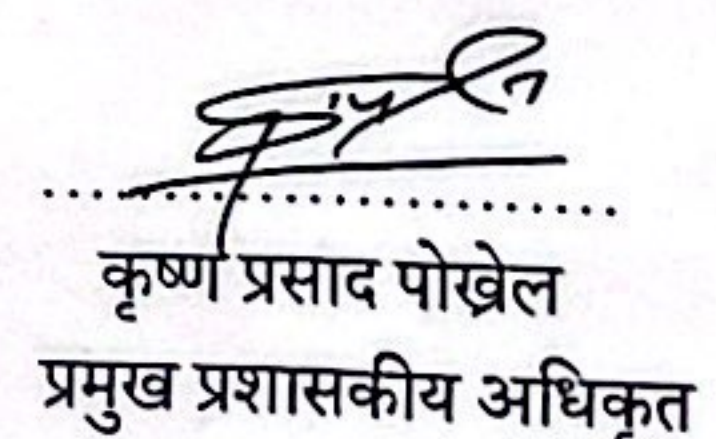 कृष्ण प्रसाद पोख्रेल
प्रमुख प्रशासकीय अधिकृत